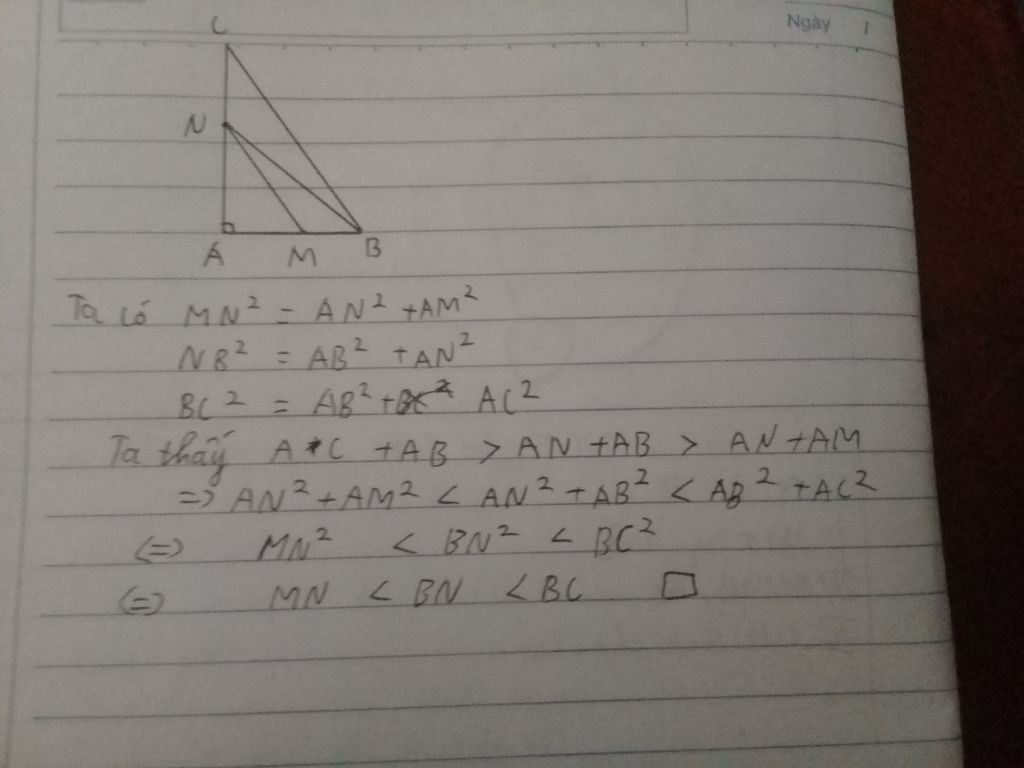 Ngày 1
C
N
A M B
Ta có MN² = AN² + AM²
NB² = AB² + AN²
BC² = AB² + AC²
Ta thấy AC + AB > AN + AB > AN + AM
=> AN² + AM² < AN² + AB² < AB² + AC²
(=) MN² < BN² < BC²
(=) MN < BN < BC □